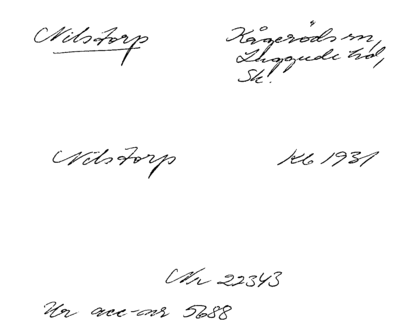 Nilstorp
Kågeröds sn,
Luggude hd,
Sk.
Nilstorp
Kb 1931
Nr 22343
Ur acc-nr 5688